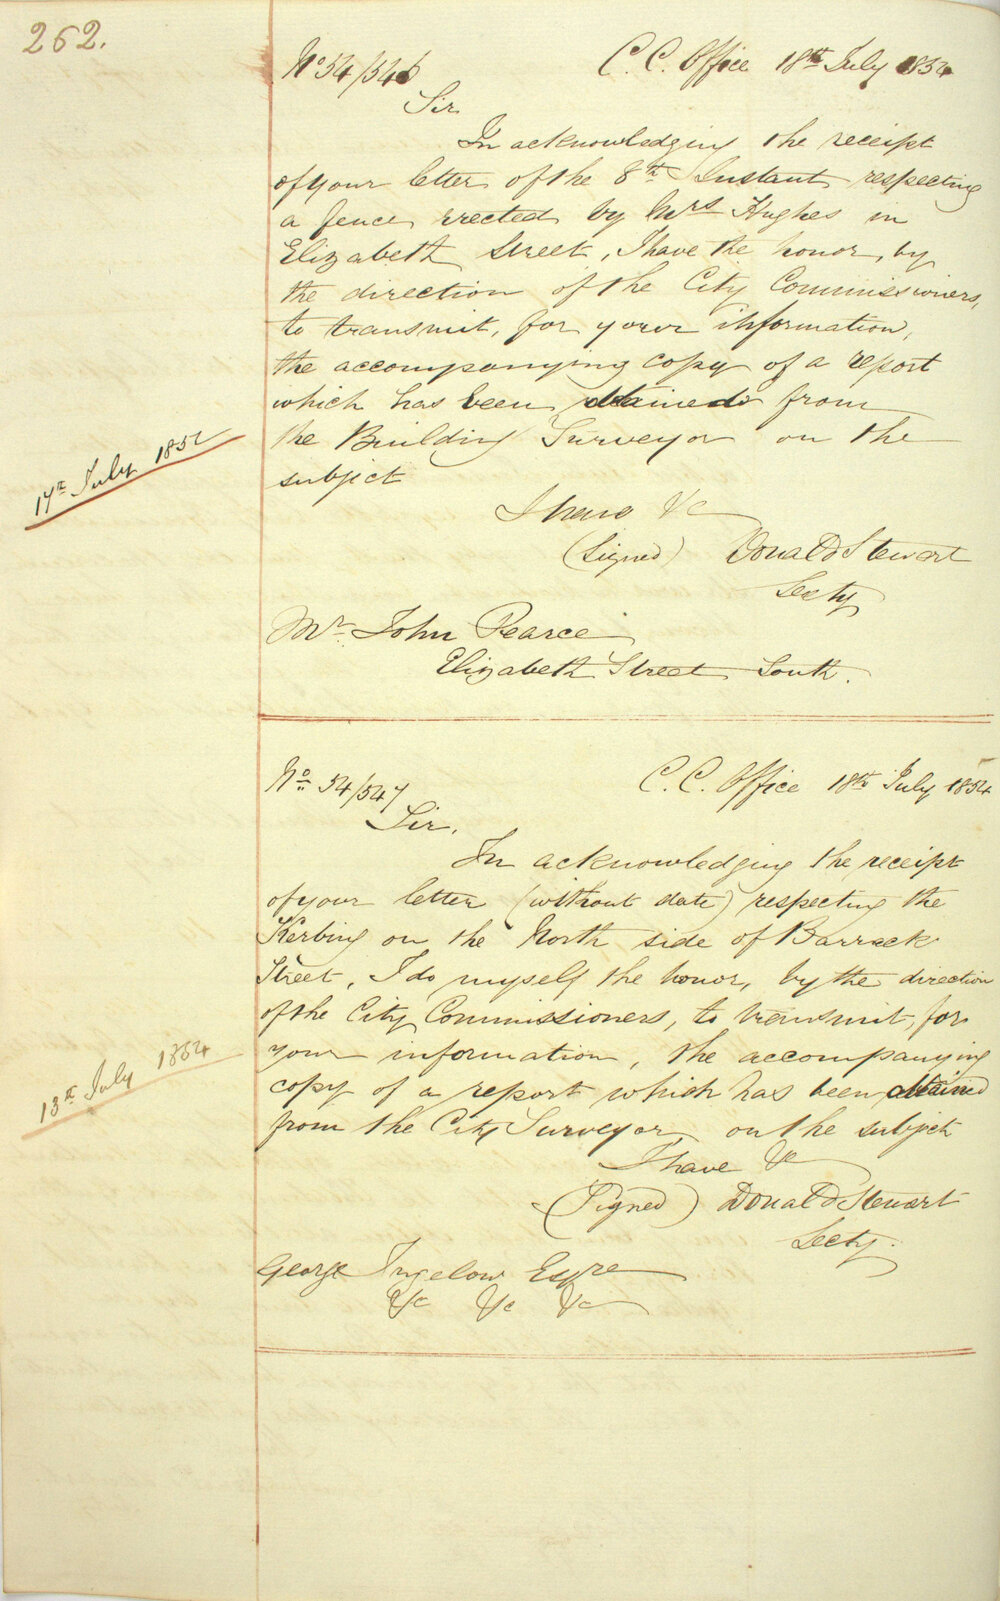 262.
No 54/546 C. C. Office 18th July 1854
Sir
In acknowledging the receipt
of your letter of the 8th Instant respecting
a fence erected by Mrs Hughes in
Elizabeth Street, I have the honor, by
the direction of the City Commissioners,
to transmit, for your information,
the accompanying copy of a report
which has been obtained from
the Building Surveyor on the
subject
17th July 1854
I have &c
(Signed) Donald Stewart
Secty
Mr John Pearce
Elizabeth Street South.
No 54/547 C. C. Office 18th July 1854
Sir,
In acknowledging the receipt
of your letter (without date) respecting the
Kerbing on the North side of Barrack
Street, I do myself the honor, by the direction
of the City Commissioners, to transmit, for
your information, the accompanying
copy of a report which has been obtained
from the City Surveyor on the subject
13th July 1854
I have &c
(Signed) Donald Stewart
Secty.
George Ingelow Esqre
&c &c &c